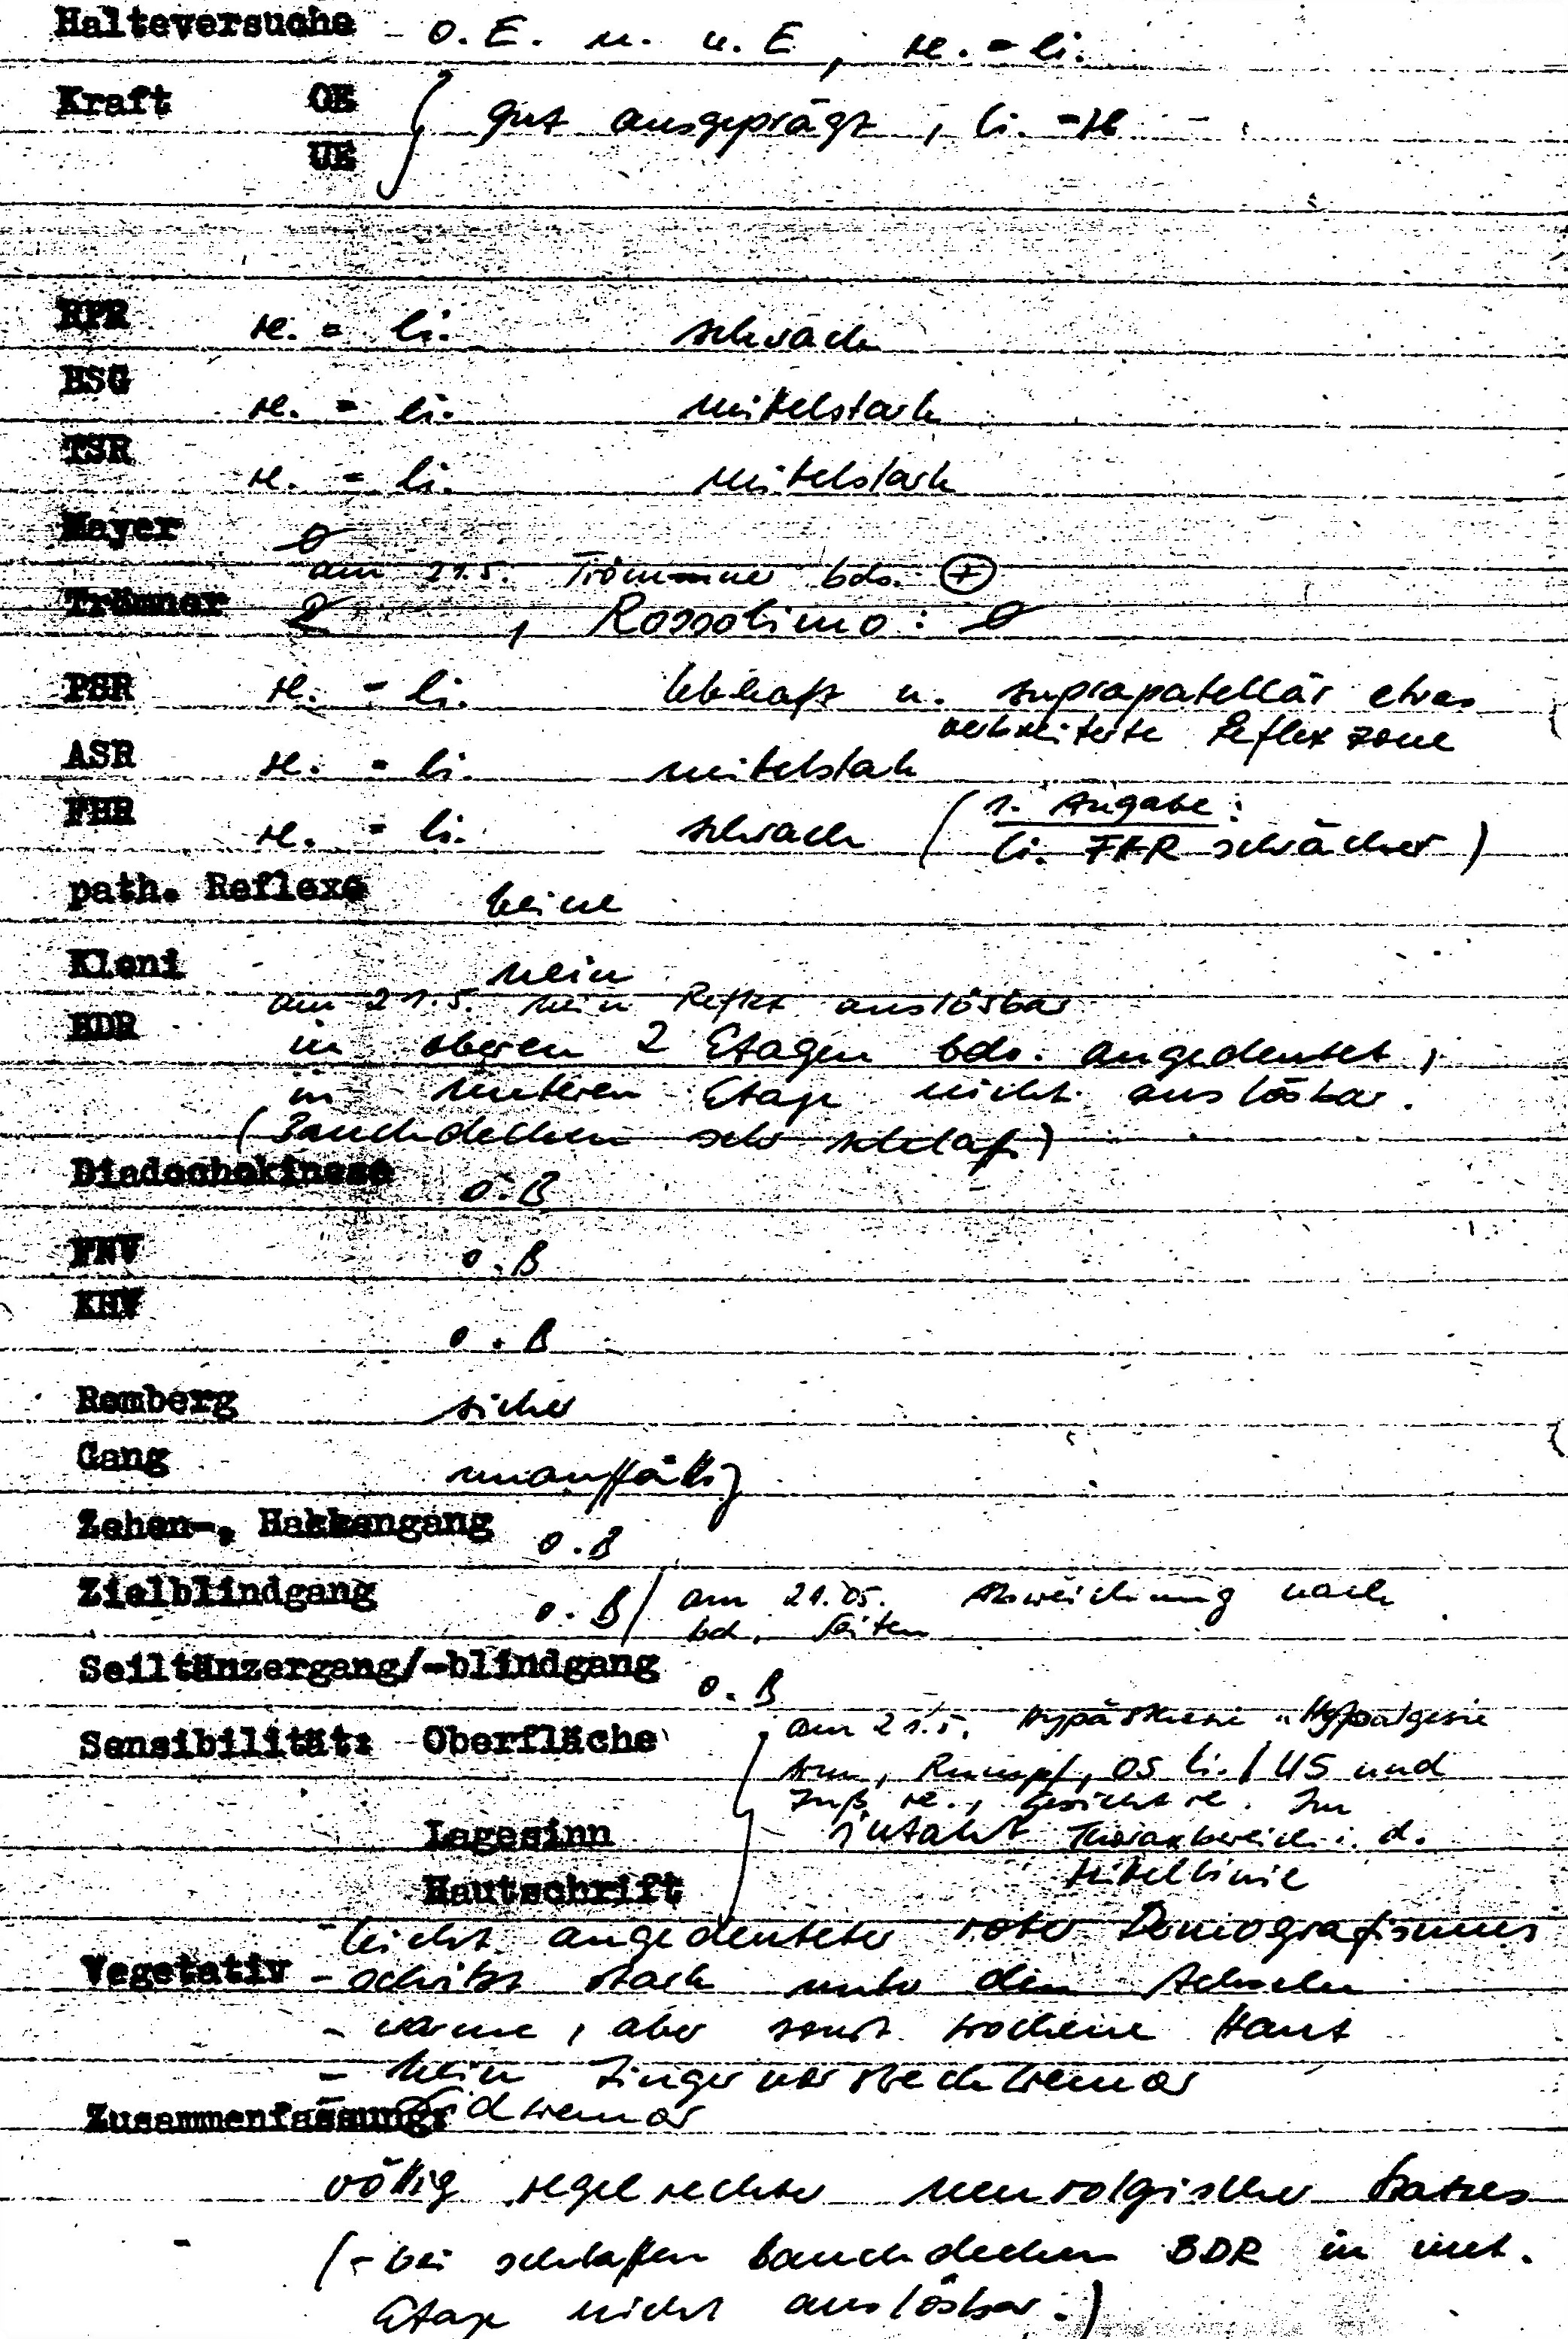 Halteversuche - o. E. u. u. E, re. = li.
Kraft OE { gut ausgeprägt, li. = re
UE
RPR re. = li. schwach
BSG re. = li. mittelstark
TSR re. = li. mittelstark
Mayer ∅
am 21.5. Trömmner bds. ⊕
Trömner ∅, Rossolimo: ∅
PSR re. = li. lebhaft u. suprapatellär etwas
verbreiterte Reflexzone
ASR re. = li. mittelstak
FHR re. = li. schwach (1. Angabe:
li. FHR schwächer)
path. Reflexe keine
Kloni nein
am 21.5. kein Reflex auslösbar
BDR in oberen 2 Etagen bds. angedeutet,
in unteren Etage nicht auslösbar.
(Bauchdecken sehr schlaff)
Diadochokinese o.B
FNV o.B
KHV o.B
Romberg sicher
Gang unauffällig
Zehen-, Hakkengang o.B
Zielblindgang o.B / am 21.05. Abweichung nach
bd. Seiten
Seiltänzergang/-blindgang o.B
Sensibilität: Oberfläche am 21.5. Hypästhesie u Hypalgesie
Arm, Rumpf, OS li. / US und
Fuß re., Gesicht re. Im
Lagesinn intakt Thoraxbereich i. d.
Hautschrift Mittellinie
- leicht angedeuteter roter Demografismus
Vegetativ - schwitzt stark unter den Achseln
- warme, aber sonst trockene Haut
- kein Fingervorstrecktremor
- Lidtremor
Zusammenfassung:
völlig regelrechter neurolgischer Status
(- bei schlaffen Bauchdecken BDR in unt.
Etage nicht auslösbar.)